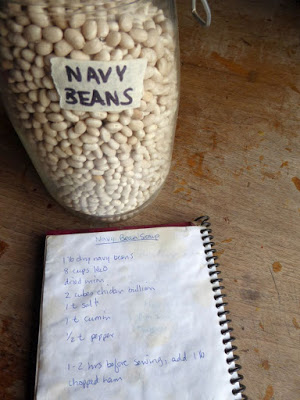 NAVY
BEANS
Navy Bean Soup
1 lb dry navy beans
8 cups H2O
dried minced
2 cubes chicken bullion
1 t salt
1 t cumin
1/2 t pepper
1-2 hrs before serving, add 1 lb
chopped ham